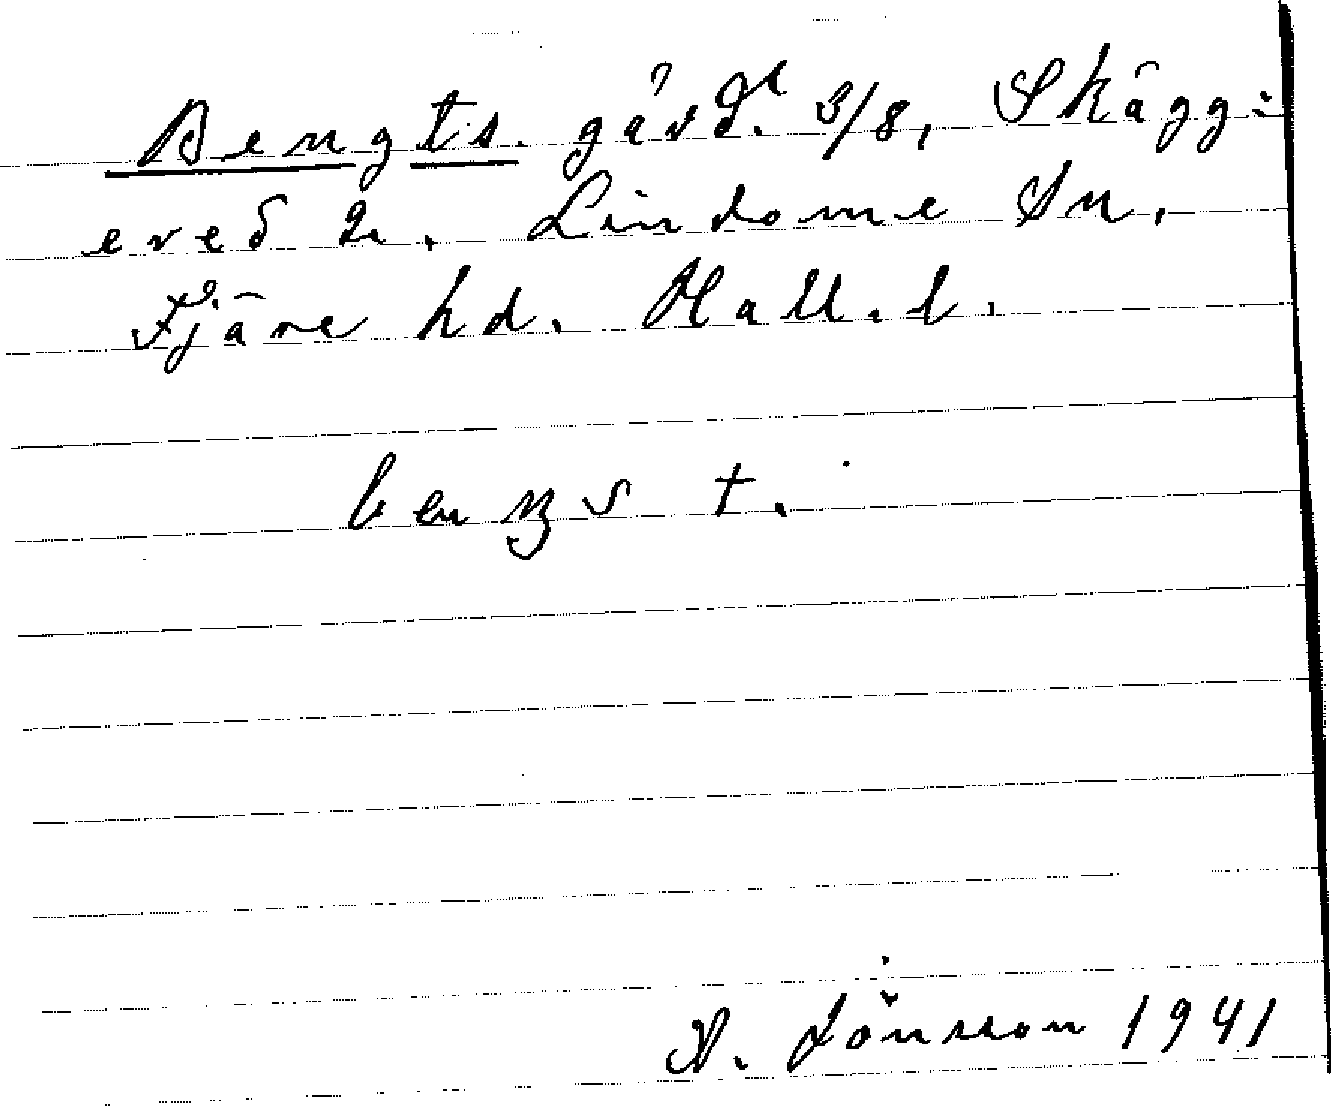 Bengts. gård. 3/8, Skägg=
ered 2. Lindome Sn.
Fjäre hd. Hall. l.
N. Jönsson 1941